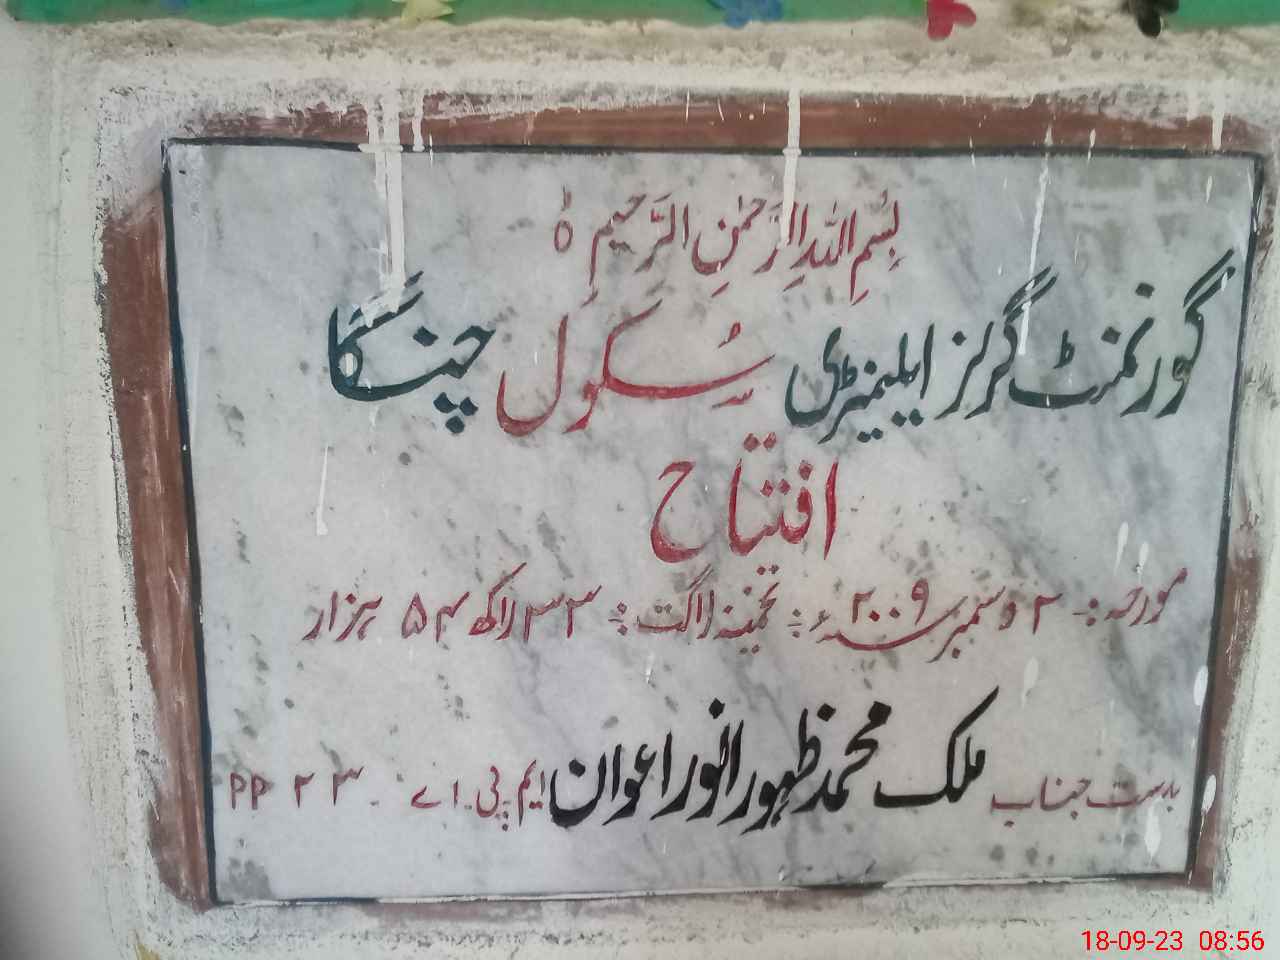 بِسْمِ اللہِ الرَّحْمٰنِ الرَّحِیْمِ ہ
گورنمنٹ گرلز ایلیمنٹری سکول چنگا
افتتاح
مورخہ :- ۲ دسمبر سنہ ۲۰۰۹ء :- تخمینہ لاگت :- ۳۳ لاکھ ۵۴ ہزار
بدست جناب ملک محمد ظہور انور اعوان ایم ۔ پی ۔ اے ۔ PP ۲۳
18-09-23 08:56